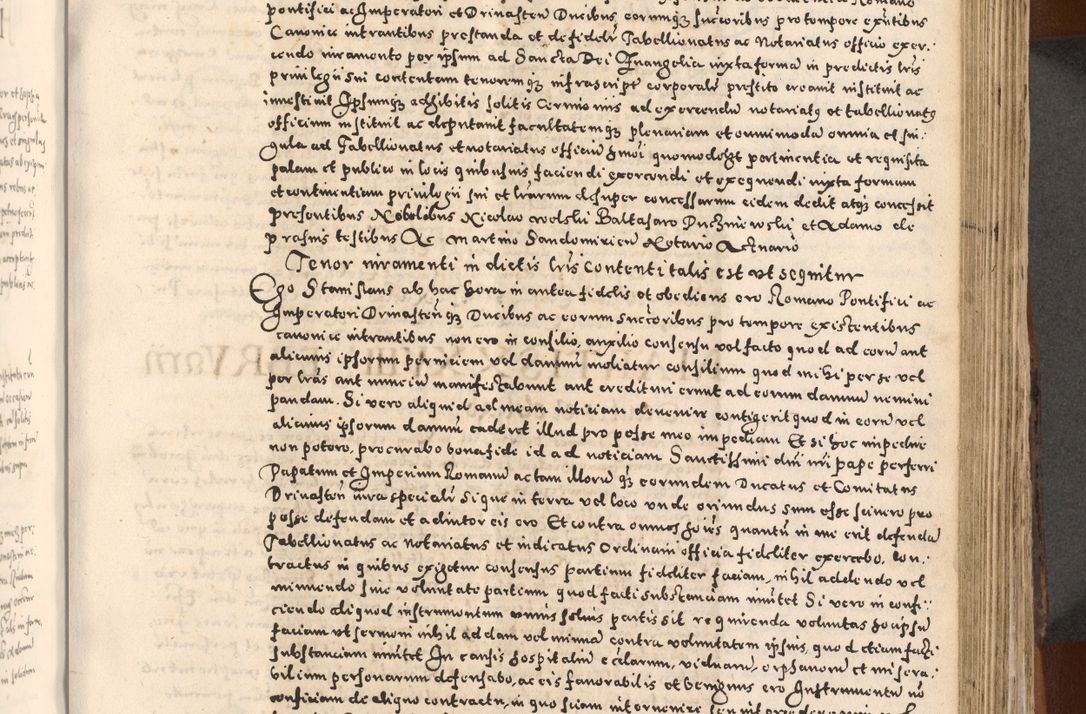 pontifici ac Imperatori et Drinasten Ducibus eorumq3 successoribus pro tempore existentibus
Canonice intrantibus prestanda et de fideli Tabellionatus ac Notariatus officio exer-
cendo iuramento per ipsum ad Sancta Dei Euangelia iuxta formam in predictis lris
priuilegii sui contentam tenoremq3 infrascript corporali prestito creauit instituit ac
inuestiuit Ipsumq3 adhibitis solitis Cerimoniis ad exercendu notariatq et tabellionatq
officium instituit ac deputauit facultatemq3 plenariam et omnimoda omnia et sin-
gula ad Tabellionatus et notariatus officiu hmoi quomodolibet pertinentia et requisita
palam et publice in locis quibusuis faciendi exercendi et exequendi iuxta formam
et continentiam priuilegii sui et lrarum desuper concessarum eidem dedit atq3 concessit
presentibus Nobilibus Nicolao Baltasaro et Adamo de
testibus Ac Martino Sandomirien Notario Actuario
Tenor iuramenti in dictis lris contenti talis est vt sequitur
Ego Stanislaus ab hac hora in antea fidelis et obediens ero Romano Pontifici ac
Imperatori Drinasten q3 Ducibus ac eorum successoribus pro tempore existentibus
canonice intrantibus non ero in consilio, auxilio consensu vel facto quo el ad coru aut
alicuius ipsorum perniciem vel damnu mediatur consilium quod mihi per se vel
per lras aut nunciu manifestabunt aut credituri erunt ad eorum damnu nemini
pandam. Si vero aliquid ad meam noticiam deuenire contigerit quod in eorum vel
alicuius ipsorum damnu caderet illud pro posse meo impediam Et si hoc impedire
non potero, procurabo bona fide id ad noticiam Sanctissimi dni nri pape perferri
Papatum et Imperium Romanu ac tam illoru q3 eorumdem Ducatus et Comitatus
Drinasten iura speciali si que in terra vel loco unde oriundus sum esse sciuero pro
posse defendam et adiutor eis ero Et contra omnes hoies quantu in me erit defenda
Tabellionatus ac Notariatus et iudicatus Ordinarii officia fideliter exercebo, Con-
tractus in quibus exigetur consensus partium fideliter faciam, nihil addendo vel
minuendo sine voluntate partium quod facti substanciam mutet Si vero in confi-
ciendo aliquod instrumentum vnius solius partis sit requirenda voluntas hoc ipsu
faciam vt sermoni nihil addam vel minuam contra voluntatem ipsius, quod etiam facti
substantiam mutet In causis hospitaliu ecclarum, viduaru, orphanoru et misera-
bilium personarum defensabo, ac eis fauorabilis et benignus ero Instrumentu no
conficiam de aliquo contractu, in quo sciam interuenire seu